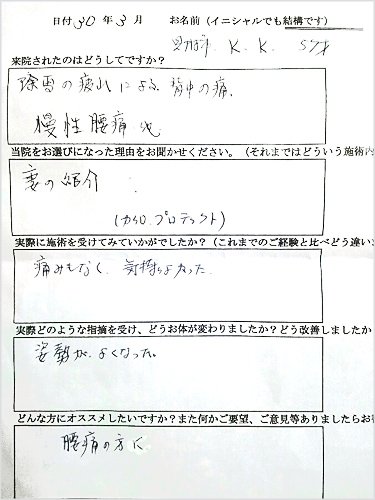 日付 30 年 3 月 お名前（イニシャルでも結構です）
K. K. 57才
来院されたのはどうしてですか？
除雪の疲れによる 背中の痛
慢性腰痛
当院をお選びになった理由をお聞かせください。（それまではどういう施術内
妻の紹介
（カイロ.プロテクト）
実際に施術を受けてみていかがでしたか？（これまでのご経験と比べどう違い
痛みもなく、気持よかった
実際どのような指摘を受け、どうお体が変わりましたか？どう改善しましたか
姿勢が、よくなった。
どんな方にオススメしたいですか？また何かご要望、ご意見等ありましたらお
腰痛の方に